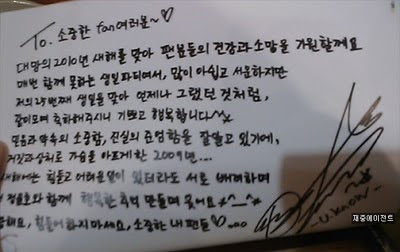 To. 소중한 fan여러분~♡
대망의 2010년 새해를 맞아 팬분들의 건강과 소망을 기원할께요
매번 함께 못하는 생일파티여서, 많이 아쉽고 서운하지만
저의 25번째 생일을 맞아 언제나 그랬던 것처럼,
같이모여 축하해주시니 기쁘고 행복합니다^^
믿음과 약속의 소중함, 진실의 존엄함을 잘알고 있기에,
거짓과 상처로 가슴을 아프게한 2009년...
새해에는 힘들고 어려운일이 있더라도 서로 배려하며
정윤호와 함께 행복한 추억 만들며 웃어요*^_^*
해요, 힘들어하지마세요, 소중한 내 팬들♡...
-U.know-
재중에이전트